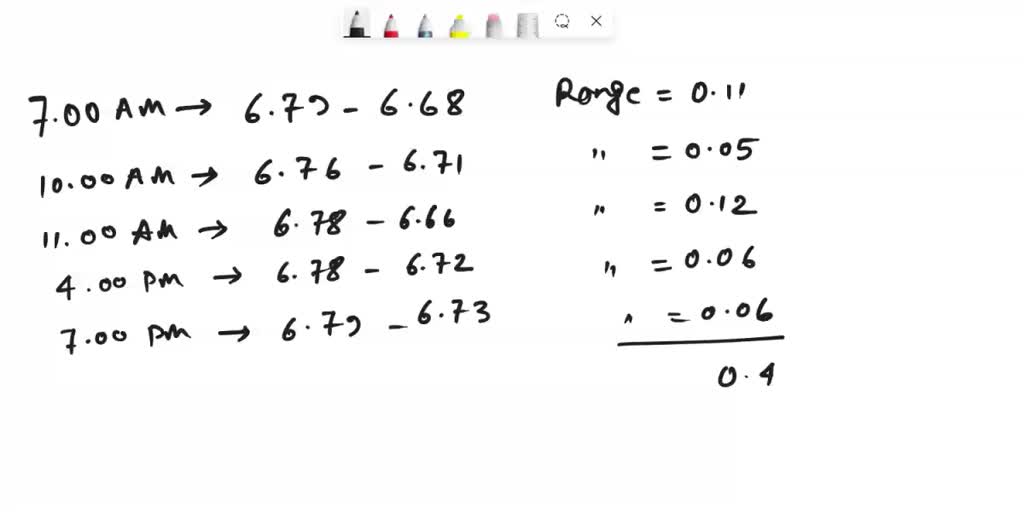 7.00 AM → 6.79 - 6.68 Range = 0.11
10.00 AM → 6.76 - 6.71 " = 0.05
11.00 AM → 6.78 - 6.66 " = 0.12
4.00 PM → 6.78 - 6.72 " = 0.06
7.00 PM → 6.79 - 6.73 " = 0.06
0.4